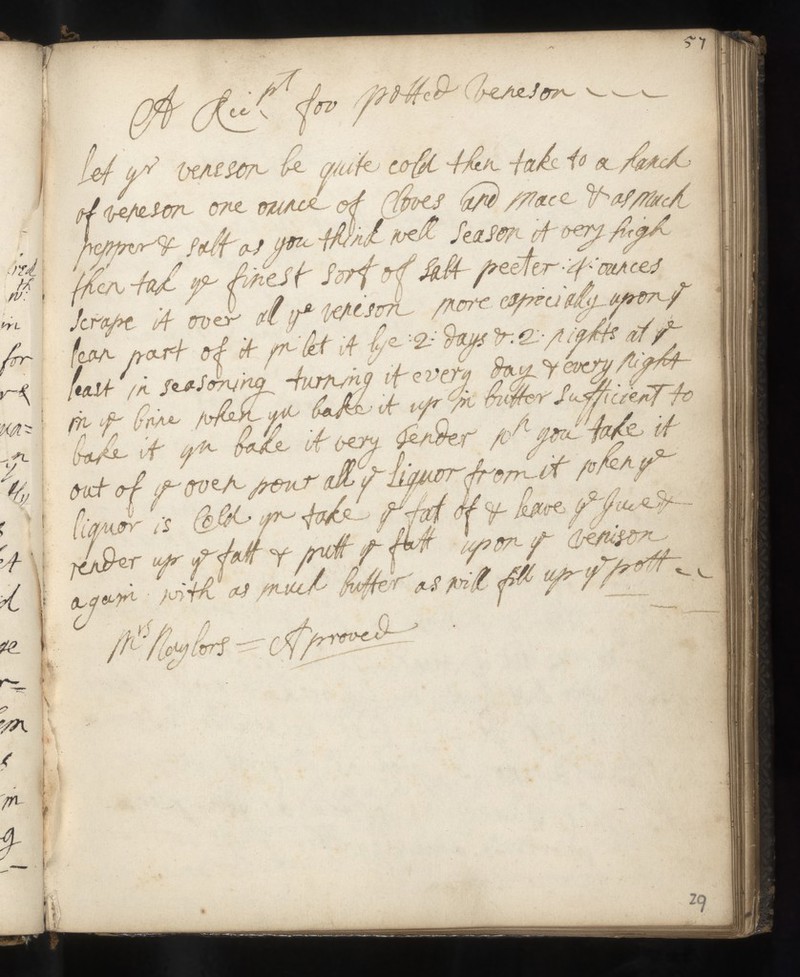 57
A Recpt for potted Veneson
Let yr veneson be quite cold then take to a hanch
of veneson one ounce of Cloves and mace & as much
pepper & salt as you think well season it very high
then tak ye finest sort of salt peeter :4: ounces
scrape it over al ye venison more especially upon ye
lean part of it yn let it lye :2: days & :2: nights at ye
least in seasoning turning it every day & every night
in ye brine when yu bake it up in butter sufficient to
bake it yn bake it very tender wn you take it
out of ye oven pour all ye liquor from it when ye
liquor is Cold yn take ye fat of & leave ye Juce &
render up ye fatt & putt ye fatt upon ye venison
again with as much butter as will fill up ye pott
Mrs Naylors = Aproved
29